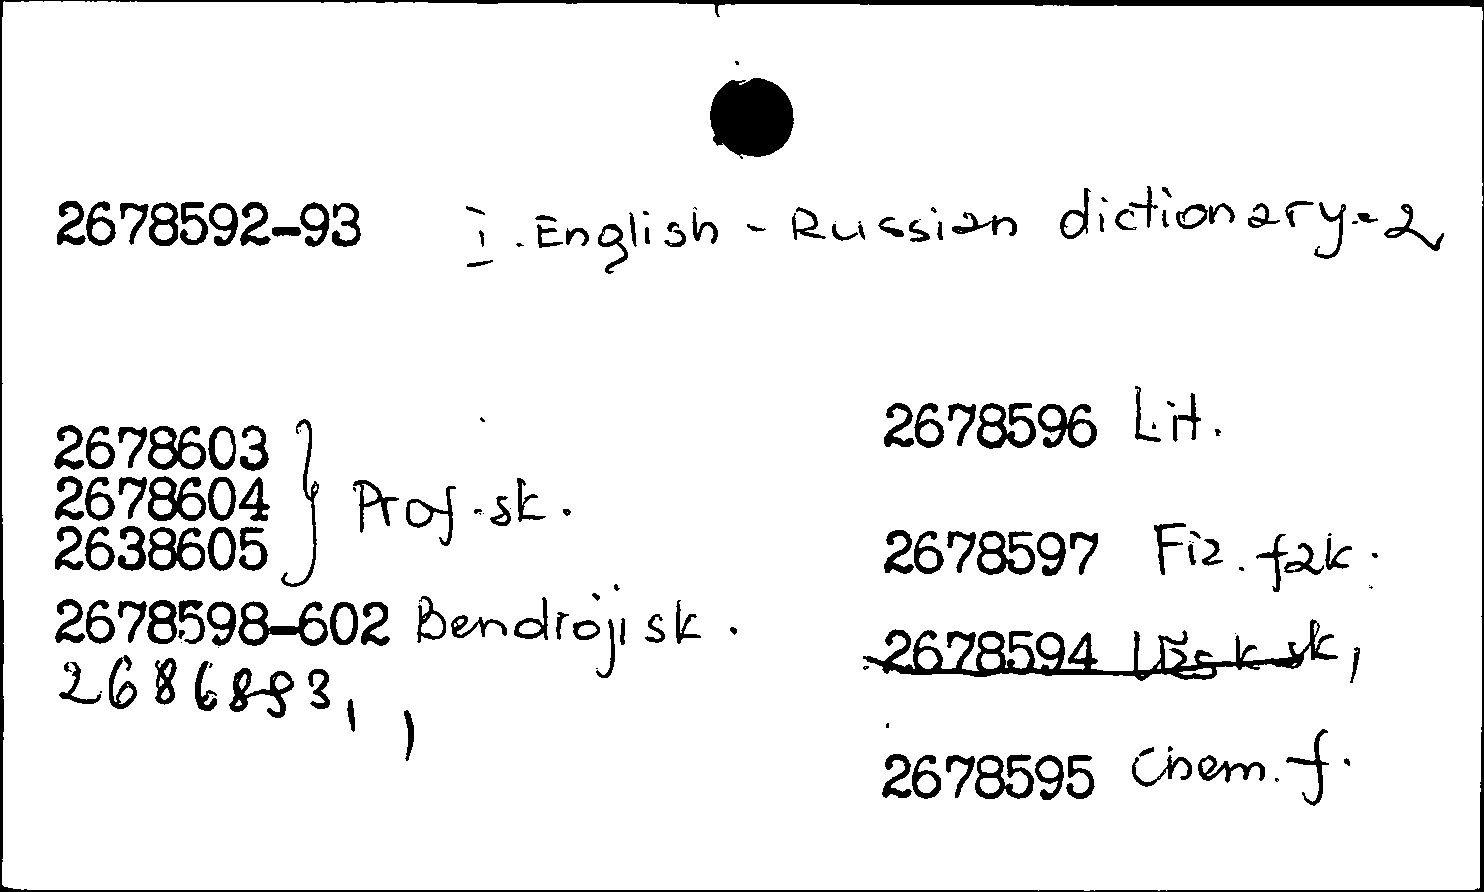 2678592-93 I. English - Russian dictionary.- 2
2678603
2678604 Prof. sk.
2638605
2678598-602 Bendroji sk.
2686893, ,
2678596 Lit.
2678597 Fiz. fak.
2678594 sk,
2678595 Chem. f.